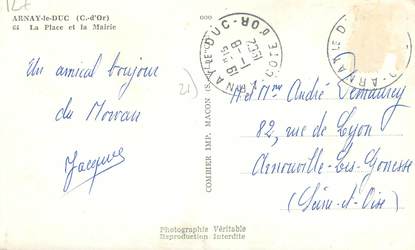 ARNAY-le-DUC (C.-d'Or)
64 La Place et la Mairie
Un amical bonjour
du Morvan
Jacques
21)
COMBIER IMP. MACON
M et Mme André
82, rue de Lyon
Arnouville-les-Gonesse
(Seine-et-Oise)
Photographie Véritable
Reproduction Interdite